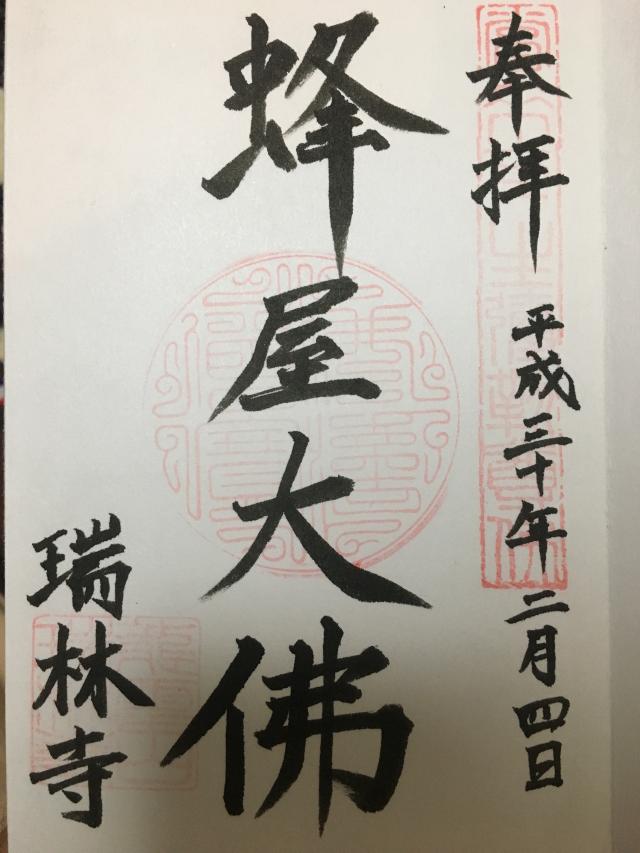 奉拝 平成三十年二月四日
蜂屋大佛
瑞林寺